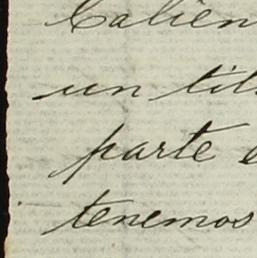 Calien
un tit
parte e
tenemos